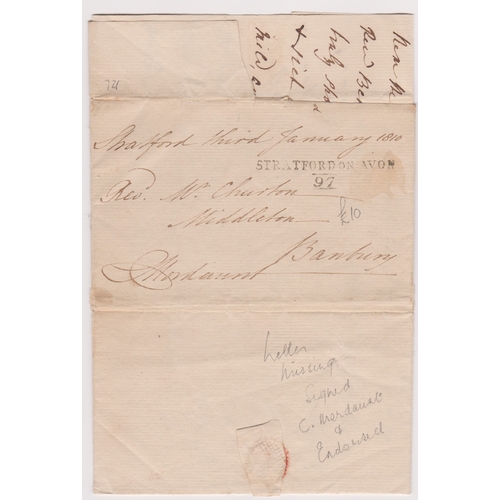 Stratford third January 1810
STRATFORD ON AVON
97
Revd. Mr. Churton
Middleton
£10
Banbury
C Mordaunt
letter
missing
Signed
C. Mordaunt
&
Endorsed